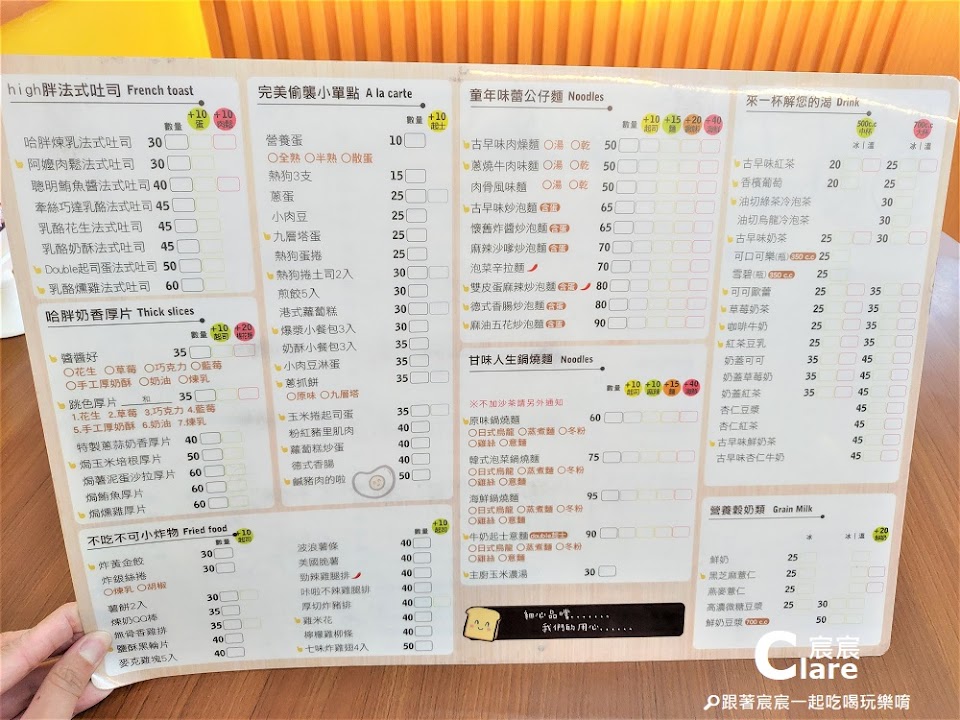 high胖法式吐司 French toast
數量 +10 蛋 +10 肉鬆
哈胖煉乳法式吐司 30
阿嬤肉鬆法式吐司 30
聰明鮪魚醬法式吐司 40
牽絲巧達乳酪法式吐司 45
乳酪花生法式吐司 45
乳酪奶酥法式吐司 45
Double起司蛋法式吐司 50
乳酪燻雞法式吐司 60
哈胖奶香厚片 Thick slices
數量 +10 起司 +20
醬醬好 35
○花生 ○草莓 ○巧克力 ○藍莓
○手工厚奶酥 ○奶油 ○煉乳
跳色厚片 __和__ 35
1.花生 2.草莓 3.巧克力 4.藍莓
5.手工厚奶酥 6.奶油 7.煉乳
特製蔥蒜奶香厚片 40
焗玉米培根厚片 50
焗薯泥蛋沙拉厚片 60
焗鮪魚厚片 60
焗燻雞厚片 60
不吃不可小炸物 Fried food
數量 +10 起司
炸黃金餃 30
炸銀絲捲 30
○煉乳 ○胡椒
薯餅2入 30
煉奶QQ棒 35
無骨香雞排 35
鹽酥黑輪片 40
麥克雞塊5入 40
數量 +10 起司
波浪薯條 40
美國脆薯 40
勁辣雞腿排 40
咔啦不辣雞腿排 40
厚切炸豬排 40
雞米花 40
檸檬雞柳條 40
七味炸雞翅4入 50
完美偷襲小單點 A la carte
數量 +10 起士
營養蛋 10
○全熟 ○半熟 ○散蛋
熱狗3支 15
蔥蛋 25
小肉豆 25
九層塔蛋 25
熱狗蛋捲 25
熱狗捲土司2入 30
煎餃5入 30
港式蘿蔔糕 30
爆漿小餐包3入 30
奶酥小餐包3入 35
小肉豆淋蛋 35
蔥抓餅 35
○原味 ○九層塔
玉米捲起司蛋 35
粉紅豬里肌肉 40
蘿蔔糕炒蛋 40
德式香腸 40
鹹豬肉的啦 50
童年味蕾公仔麵 Noodles
數量 +10 起司 +15 麵 +20 +40
古早味肉燥麵 ○湯 ○乾 50
蔥燒牛肉味麵 ○湯 ○乾 50
肉骨風味麵 ○湯 ○乾 50
古早味炒泡麵 含蛋 65
懷舊炸醬炒泡麵 含蛋 65
麻辣沙嗲炒泡麵 含蛋 70
泡菜辛拉麵 70
雙皮蛋麻辣炒泡麵 含蛋 80
德式香腸炒泡麵 含蛋 80
麻油五花炒泡麵 含蛋 90
甘味人生鍋燒麵 Noodles
數量 +10 起司 +10 麻辣 +15 麵 +40
※不加沙茶請另外通知
原味鍋燒麵 60
○日式烏龍 ○蒸煮麵 ○冬粉
○雞絲 ○意麵
韓式泡菜鍋燒麵 75
○日式烏龍 ○蒸煮麵 ○冬粉
○雞絲 ○意麵
海鮮鍋燒麵 95
○日式烏龍 ○蒸煮麵 ○冬粉
○雞絲 ○意麵
牛奶起士意麵 double起士 90
○日式烏龍 ○蒸煮麵 ○冬粉
○雞絲 ○意麵
主廚玉米濃湯 30
細心品嚐.......
我們的用心......
來一杯解您的渴 Drink
500c.c 中杯 700c.c 大杯
冰|溫 冰|溫
古早味紅茶 20 25
香檳葡萄 20 25
油切綠茶冷泡茶 30
油切烏龍冷泡茶 30
古早味奶茶 25 30
可口可樂(瓶) 350 c.c 25
雪碧(瓶) 350 c.c 25
可可歐蕾 25 35
草莓奶茶 25 35
咖啡牛奶 25 35
紅茶豆乳 25 35
奶蓋可可 35 45
奶蓋草莓奶 35 45
奶蓋紅茶 35 45
杏仁豆漿 45
杏仁紅茶 45
古早味鮮奶茶 45
古早味杏仁牛奶 45
營養穀奶類 Grain Milk
冰 冰|溫 +20 鮮奶
鮮奶 25
黑芝麻薏仁 25
燕麥薏仁 25
高濃微糖豆漿 25 30
鮮奶豆漿 700 c.c 50
宸宸
Clare
跟著宸宸一起吃喝玩樂唷